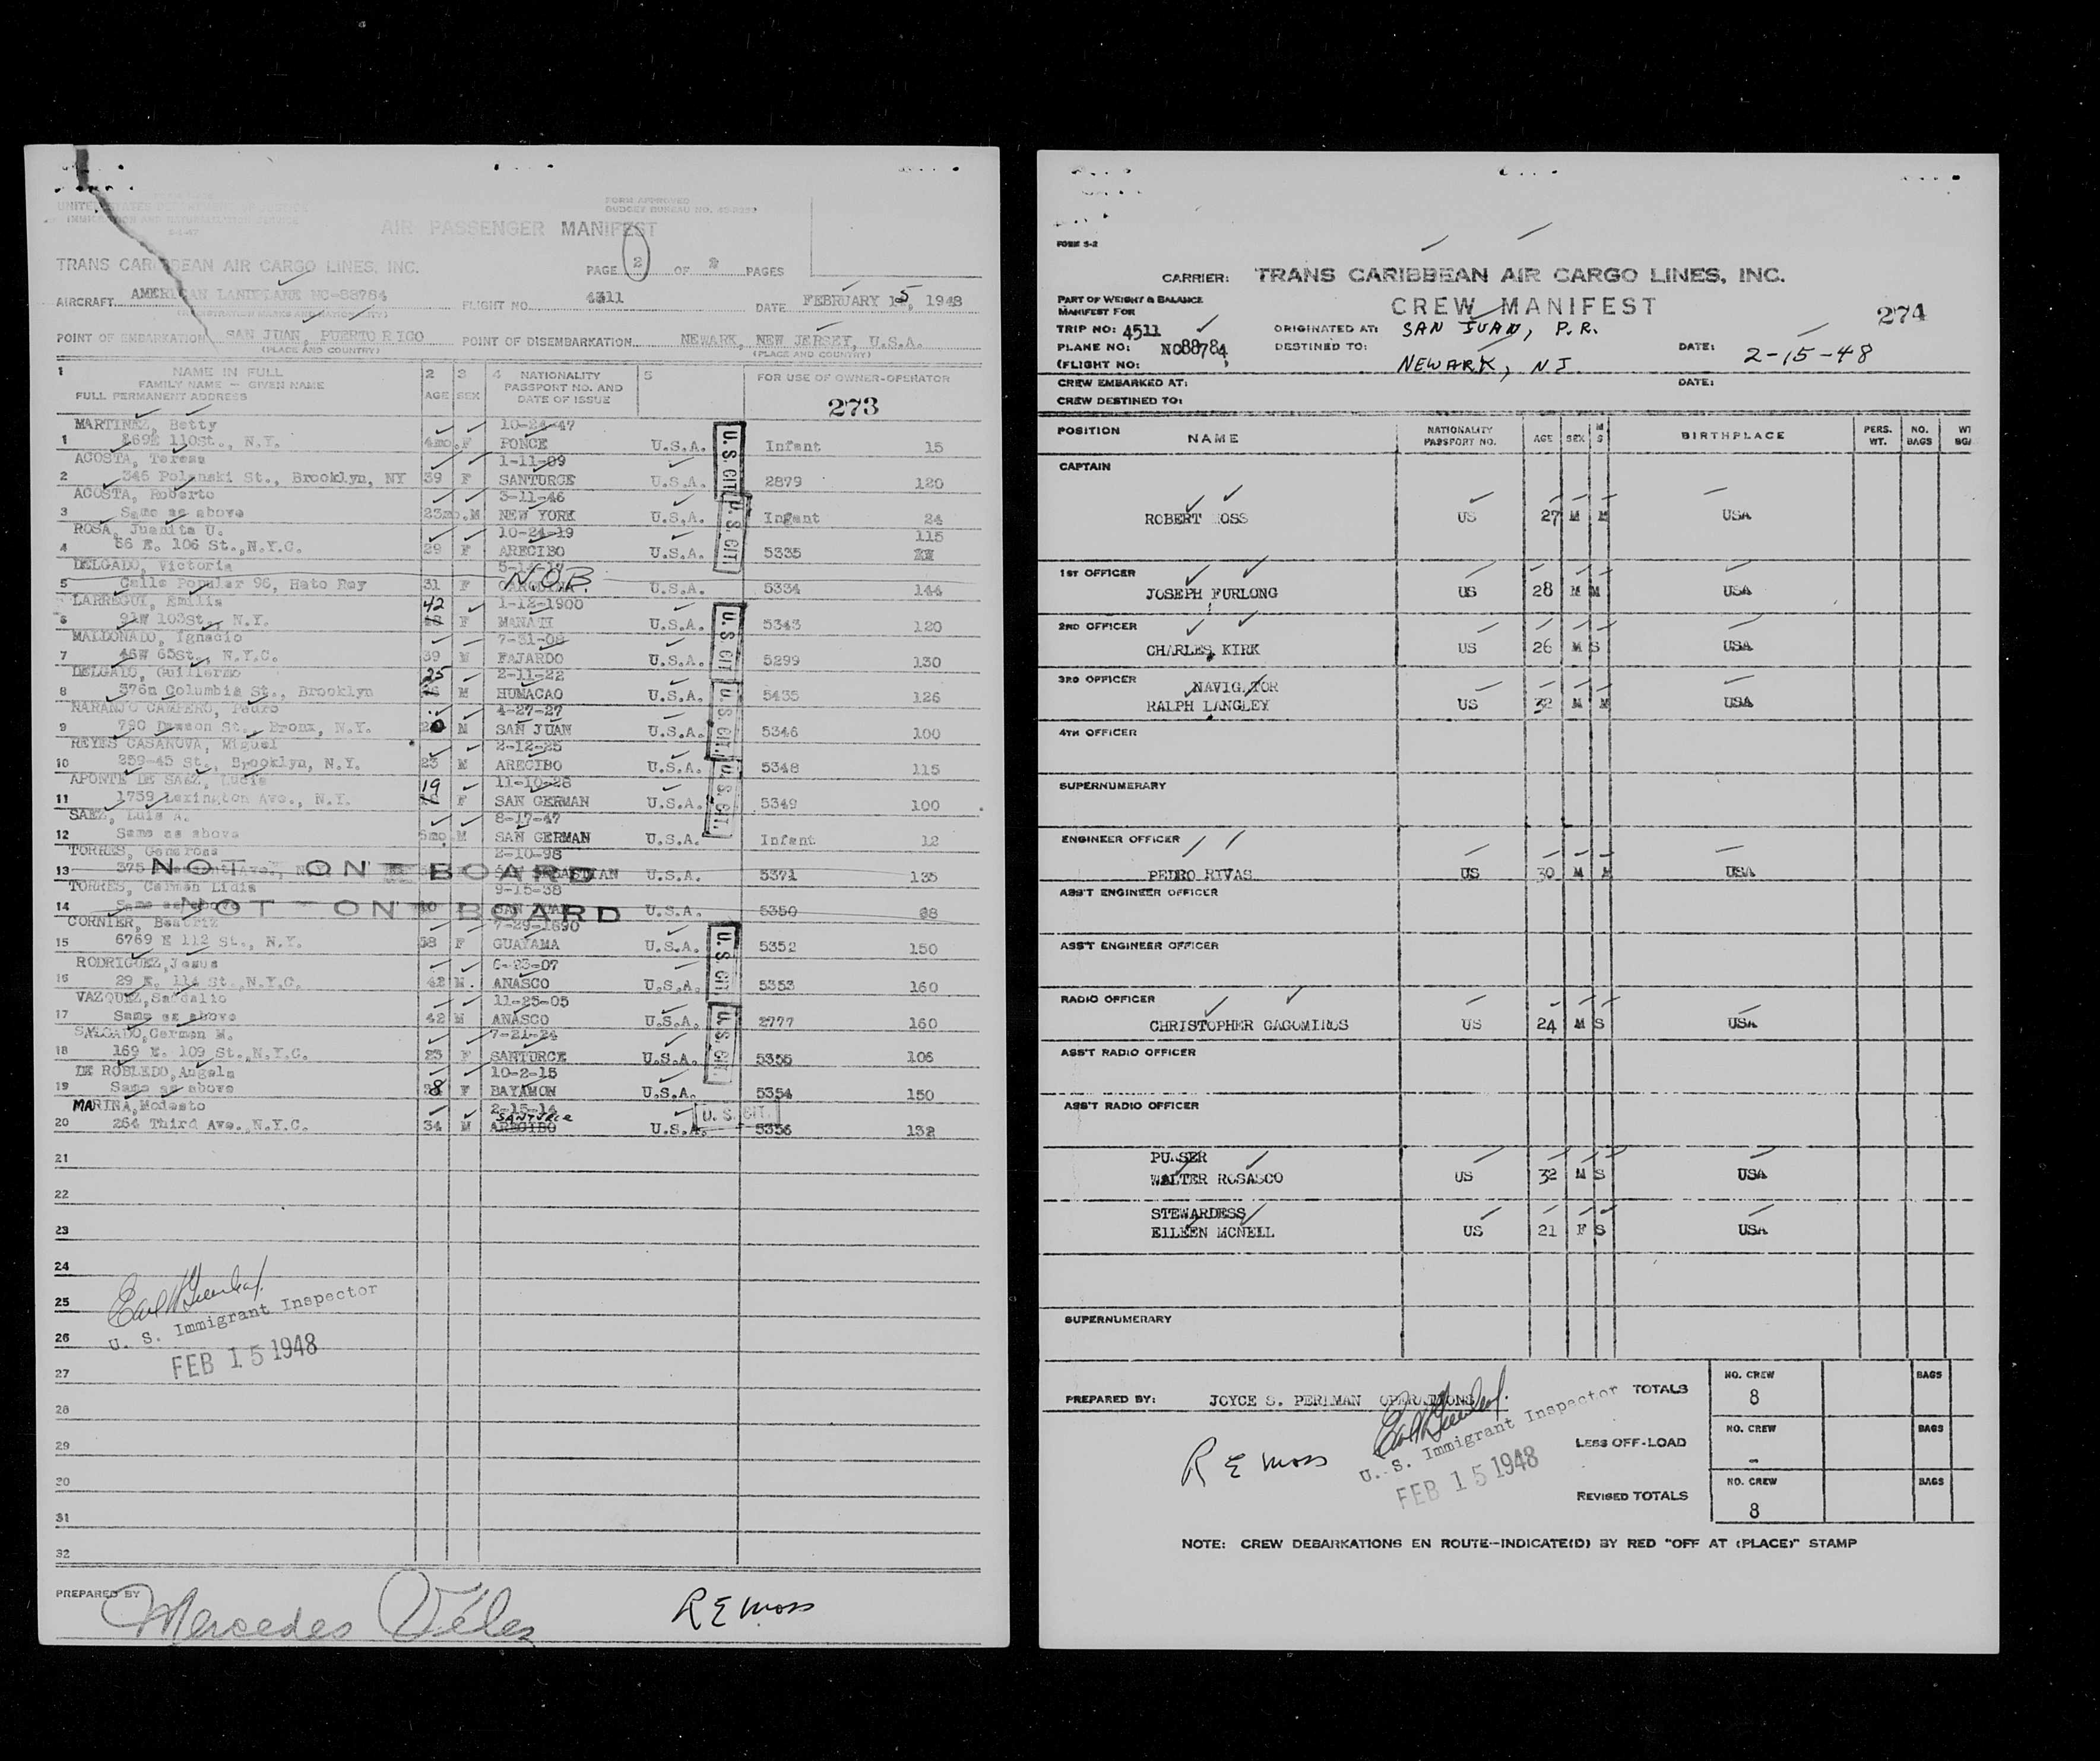 UNITED STATES DEPARTMENT OF JUSTICE
IMMIGRATION AND NATURALIZATION SERVICE
FORM APPROVED
BUDGET BUREAU NO.
AIR PASSENGER MANIFEST
TRANS CARIBBEAN AIR CARGO LINES, INC.
PAGE 2 OF 2 PAGES
AIRCRAFT AMERICAN LANDPLANE NC-88784
(REGISTRATION MARKS AND NATIONALITY)
FLIGHT NO. 4511
DATE FEBRUARY 15, 1948
POINT OF EMBARKATION SAN JUAN, PUERTO RICO
(PLACE AND COUNTRY)
POINT OF DISEMBARKATION NEWARK, NEW JERSEY, U.S.A.
(PLACE AND COUNTRY)
1 NAME IN FULL
FAMILY NAME — GIVEN NAME
FULL PERMANENT ADDRESS
2 AGE
3 SEX
4 NATIONALITY
PASSPORT NO. AND
DATE OF ISSUE
5
FOR USE OF OWNER-OPERATOR
273
MARTINEZ, Betty 10-24-47
1 169E 110St., N.Y. 4mo. F PONCE U.S.A. Infant 15
ACOSTA, Teresa 1-11-09
2 345 Polanski St., Brooklyn, NY 39 F SANTURCE U.S.A. 2879 120
ACOSTA, Roberto 3-11-46
3 Same as above 23mo. M NEW YORK U.S.A. Infant 24
ROSA, Juanita U. 10-24-19 115
4 56 E. 106 St., N.Y.C. 29 F ARECIBO U.S.A. 5335
DELGADO, Victoria N.O.B.
5 Calle Popular 96, Hato Rey 31 F CAROLINA U.S.A. 5334 144
LARREGUI, Emilia 42 1-12-1900
6 91W 103St., N.Y. F MANATI U.S.A. 5343 120
MALDONADO, Ignacio 7-31-08
7 46W 65St., N.Y.C. 39 M FAJARDO U.S.A. 5299 130
DELGADO, Guillermo 25 2-11-22
8 576n Columbia St., Brooklyn M HUMACAO U.S.A. 5435 126
NARANJO CAMPERO, Pedro 4-27-27
9 790 Dawson St., Bronx, N.Y. 20 M SAN JUAN U.S.A. 5346 100
REYES CASANOVA, Miguel 2-12-25
10 259-45 St., Brooklyn, N.Y. 23 M ARECIBO U.S.A. 5348 115
APONTE DE SAEZ, Lucia 19 11-10-28
11 1759 Lexington Ave., N.Y. F SAN GERMAN U.S.A. 5349 100
SAEZ, Luis A. 8-17-47
12 Same as above 6mo. M SAN GERMAN U.S.A. Infant 12
TORRES, Generosa 2-10-98
NOT ON BOARD
13 375 SAN SEBASTIAN U.S.A. 5371 135
TORRES, Carmen Lidia 9-15-38
NOT ON BOARD
14 Same as above SAN JUAN U.S.A. 5350 68
CORNIER, Beatriz 7-29-1890
15 6769 E 112 St., N.Y. 58 F GUAYAMA U.S.A. 5352 150
RODRIGUEZ, Jesus 6-23-07
16 29 E. 114 St., N.Y.C. 42 M. ANASCO U.S.A. 5353 160
VAZQUEZ, Sandalio 11-25-05
17 Same as above 42 M ANASCO U.S.A. 2777 160
SALGADO, Carmen M. 7-21-24
18 169 E. 109 St., N.Y.C. 23 F SANTURCE U.S.A. 5355 106
DE ROBLEDO, Angela 10-2-15
19 Same as above 38 F BAYAMON U.S.A. 5354 150
MARINA, Modesto 2-15-14
SANTURCE
20 264 Third Ave., N.Y.C. 34 M ARECIBO U.S.A. 5356 132
U.S. CIT.
U.S. CIT.
U.S. CIT.
U.S. CIT.
U.S. CIT.
U.S. CIT.
U.S. CIT.
U.S. CIT.
21
22
23
24
25
26
27
28
29
30
31
32
U. S. Immigrant Inspector
FEB 15 1948
PREPARED BY Mercedes Vélez
R E Moss
FORM S-2
CARRIER: TRANS CARIBBEAN AIR CARGO LINES, INC.
CREW MANIFEST
274
PART OF WEIGHT & BALANCE
MANIFEST FOR
TRIP NO: 4511
PLANE NO: NC88784
(FLIGHT NO:
ORIGINATED AT: SAN JUAN, P.R.
DESTINED TO: NEWARK, NJ
DATE: 2-15-48
CREW EMBARKED AT:
DATE:
CREW DESTINED TO:
POSITION NAME NATIONALITY PASSPORT NO. AGE SEX M S BIRTHPLACE PERS. WT. NO. BAGS WT BGA
CAPTAIN
ROBERT MOSS US 27 M M USA
1ST OFFICER
JOSEPH FURLONG US 28 M M USA
2ND OFFICER
CHARLES KIRK US 26 M S USA
3RD OFFICER NAVIGATOR
RALPH LANGLEY US 32 M M USA
4TH OFFICER
SUPERNUMERARY
ENGINEER OFFICER
PEDRO RIVAS US 30 M M USA
ASS'T ENGINEER OFFICER
ASS'T ENGINEER OFFICER
RADIO OFFICER
CHRISTOPHER GAGOMIROS US 24 M S USA
ASS'T RADIO OFFICER
ASS'T RADIO OFFICER
PURSER
WALTER ROSASCO US 32 M S USA
STEWARDESS
EILEEN MCNELL US 21 F S USA
SUPERNUMERARY
PREPARED BY: JOYCE S. PERLMAN OPERATIONS
R E Moss
U. S. Immigrant Inspector
FEB 15 1948
TOTALS NO. CREW 8 BAGS
LESS OFF-LOAD NO. CREW - BAGS
REVISED TOTALS NO. CREW 8 BAGS
NOTE: CREW DEBARKATIONS EN ROUTE—INDICATE(D) BY RED "OFF AT (PLACE)" STAMP